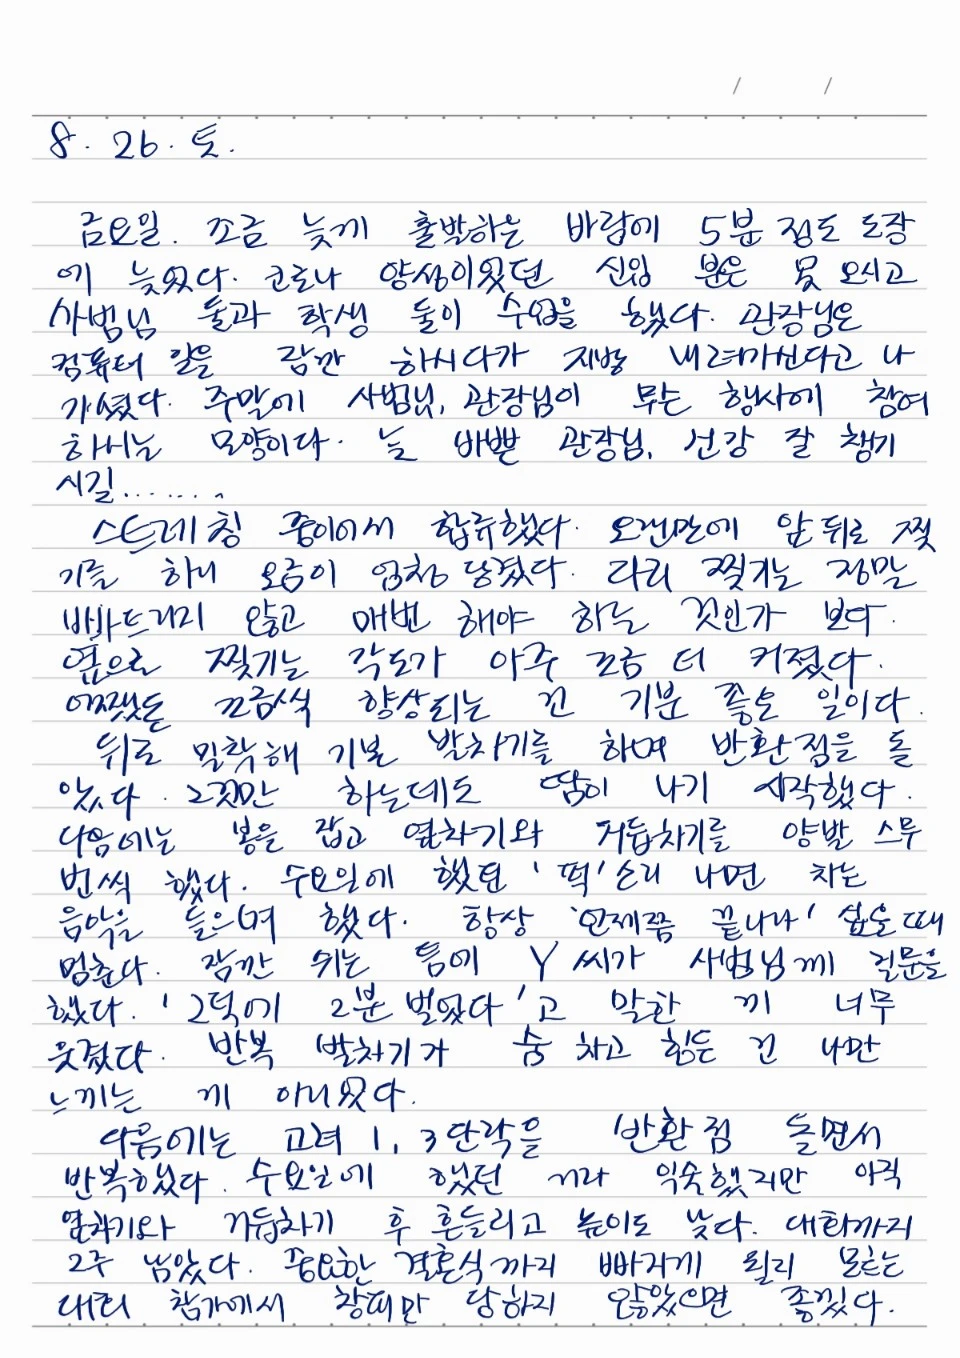 8. 26. 토.
금요일. 조금 늦게 출발하는 바람에 5분 정도 도장
에 늦었다. 코로나 양성이었던 신입 분은 못 오시고
사범님 둘과 학생 둘이 수업을 했다. 관장님은
컴퓨터 일을 잠깐 하시다가 지방 내려가신다고 나
가셨다. 주말에 사범님, 관장님이 무슨 행사에 참여
하시는 모양이다. 늘 바쁜 관장님, 건강 잘 챙기
시길.......
스트레칭 중이어서 합류했다. 오랜만에 앞뒤로 찢
기를 하니 오금이 엄청 당겼다. 다리 찢기는 정말
바바드거리지 않고 매번 해야 하는 것인가 보다.
옆으로 찢기는 각도가 아주 조금 더 커졌다.
어쨌든 조금씩 향상되는 건 기분 좋은 일이다.
뒤로 밀착해 기본 발차기를 하며 반환점을 돌
았다. 그것만 하는데도 땀이 나기 시작했다.
다음에는 봉을 잡고 옆차기와 거듭차기를 양발 스무
번씩 했다. 수요일에 했던 '떡' 소리 나면 차는
음악을 들으며 했다. 항상 '언제쯤 끝나나' 싶을 때
멈춘다. 잠깐 쉬는 틈에 Y씨가 사범님께 질문을
했다. '그덕에 2분 벌었다'고 말한 게 너무
웃겼다. 반복 발차기가 숨 차고 힘든 건 나만
느끼는 게 아니었다.
다음에는 고려 1, 3단락을 반환점 돌면서
반복했다. 수요일에 했던 거라 익숙했지만 아직
옆차기와 거듭차기 후 흔들리고 높이도 낮다. 대회까지
2주 남았다. 중요한 결혼식까지 빠지게 될지 모르는
대회 참가에서 창피만 당하지 않았으면 좋겠다.